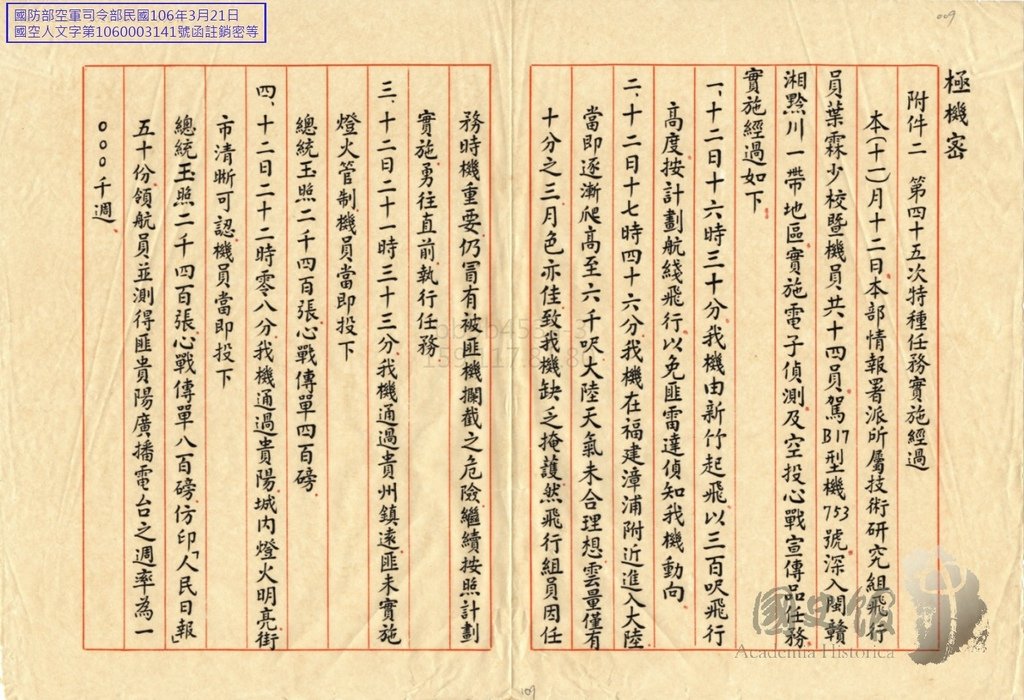 國防部空軍司令部民國106年3月21日
國空人文字第1060003141號函註銷密等
009
極機密
附件二　第四十五次特種任務實施經過
本(十一)月十二日本部情報署派所屬技術研究組飛行
員葉霖少校暨機員共十四員駕B17型機753號深入閩贛
湘黔川一帶地區實施電子偵測及空投心戰宣傳品任務
實施經過如下
一、十二日十六時三十分我機由新竹起飛以三百呎飛行
高度按計劃航綫飛行以免匪雷達偵知我機動向
二、十二日十七時四十六分我機在福建漳浦附近進入大陸
當即逐漸爬高至六千呎大陸天氣未合理想雲量僅有
十分之三月色亦佳致我機缺乏掩護然飛行組員因任
務時機重要仍冒有被匪機攔截之危險繼續按照計劃
實施勇往直前執行任務
三、十二日二十一時三十三分我機通過貴州鎮遠匪未實施
燈火管制機員當即投下
總統玉照二千四百張心戰傳單四百磅
四、十二日二十二時零八分我機通過貴陽城內燈火明亮街
市清晰可認機員當即投下
總統玉照二千四百張心戰傳單八百磅仿印「人民日報」
五十份領航員並測得匪貴陽廣播電台之週率為一
○○○千週
109
國史館
Academia Historica